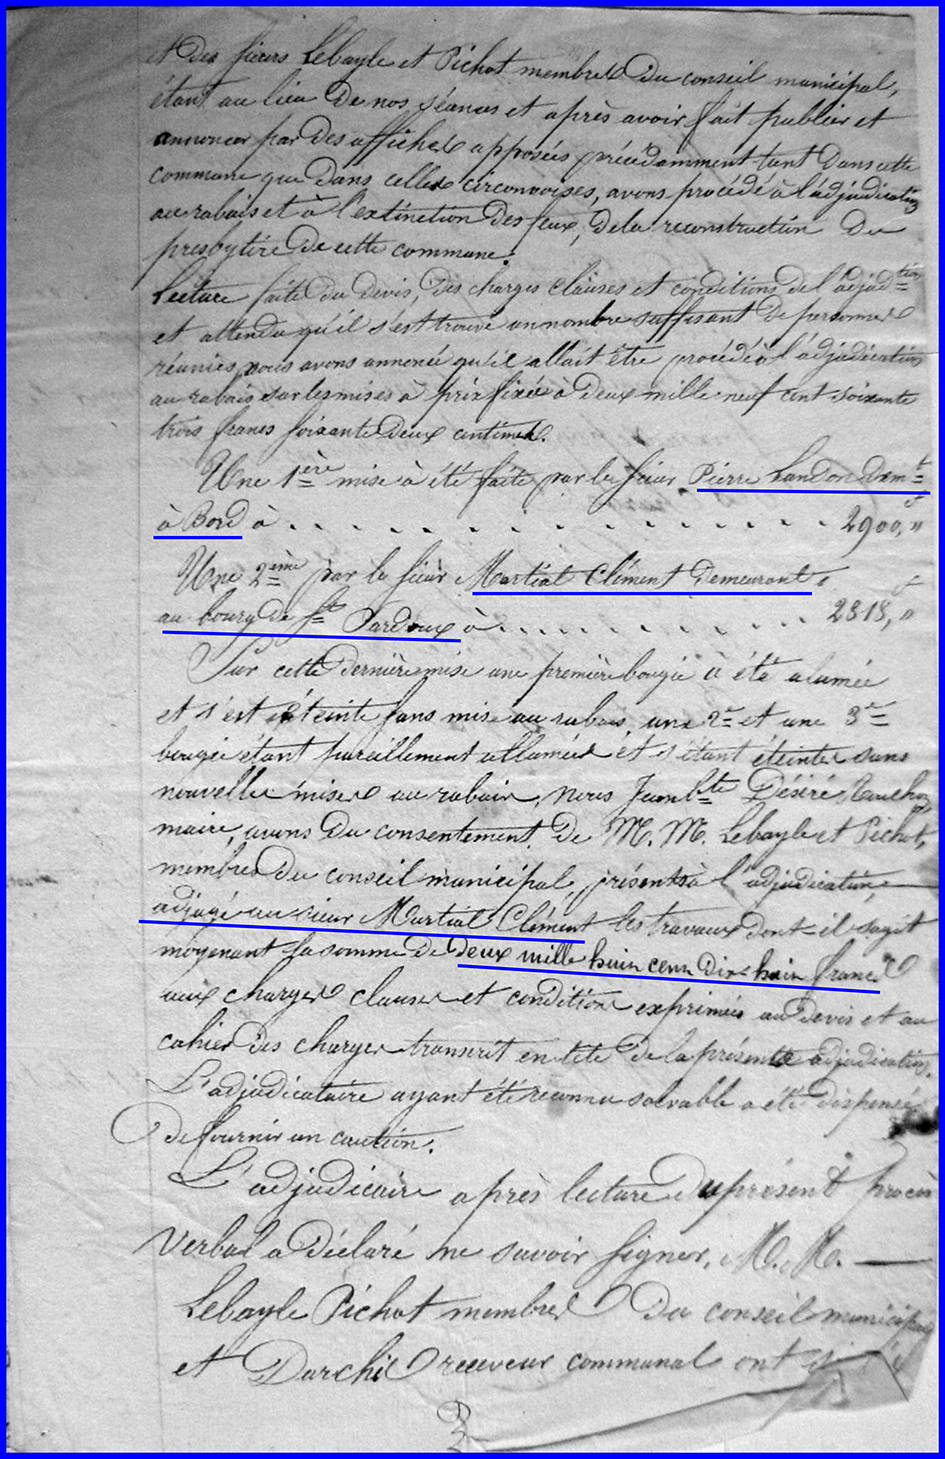 et des sieurs Lebayle et Pichot membres du conseil municipal,
étant au lieu de nos séances et après avoir fait publier et
annoncer par des affiches apposées précédamment tant dans cette
commune que dans celles circonvoises, avons procédé à l'adjudication
au rabais et à l'extinction des feux, de la reconstruction du
presbytère de cette commune.
Lecture faite du devis, des charges clauses et conditions de l'adjudtion
et attendu qu'il s'est trouvé un nombre suffisant de personnes
réunies, nous avons annoncé qu'il allait être procédé à l'adjudication
au rabais sur les mises à prix fixée à deux mille neuf cent soixante
trois francs soixante deux centimes.
Une 1ère mise à été faite par le sieur Pierre Landon demt
à Bord à . . . . . . . . . . . . . . . . 2900,"
Une 2ème par le sieur Martial Clément demeurant
au bourg de St Pardoux à . . . . . . . . . . . 2818,"
Sur cette dernière mise une première bougie a été alumée
et s'est éteinte sans mise au rabais, une 2e et une 3e
bougie étant pareillement allumées et s'étant éteintes sans
nouvelles mises au rabais, nous Jean Bte Désiré
maire, avons du consentement de M. M. Lebayle et Pichot,
membres du conseil municipal, présents à l'adjudication,
adjugé au sieur Martial Clément les travaux dont il sagit
moyenant la somme de deux mille huit cent dix huit francs
aux charges clauses et conditions exprimées au devis et au
cahier des charges transcrit en tête de la présente adjudication.
L'adjudicataire ayant été reconnu solvable a été dispensé
de fournir un caution.
L'adjudicaire après lecture du présent procès
verbal a déclaré ne savoir signer, M. M.
Lebayle Pichot membres du conseil municipal
et Darchis receveur communal ont